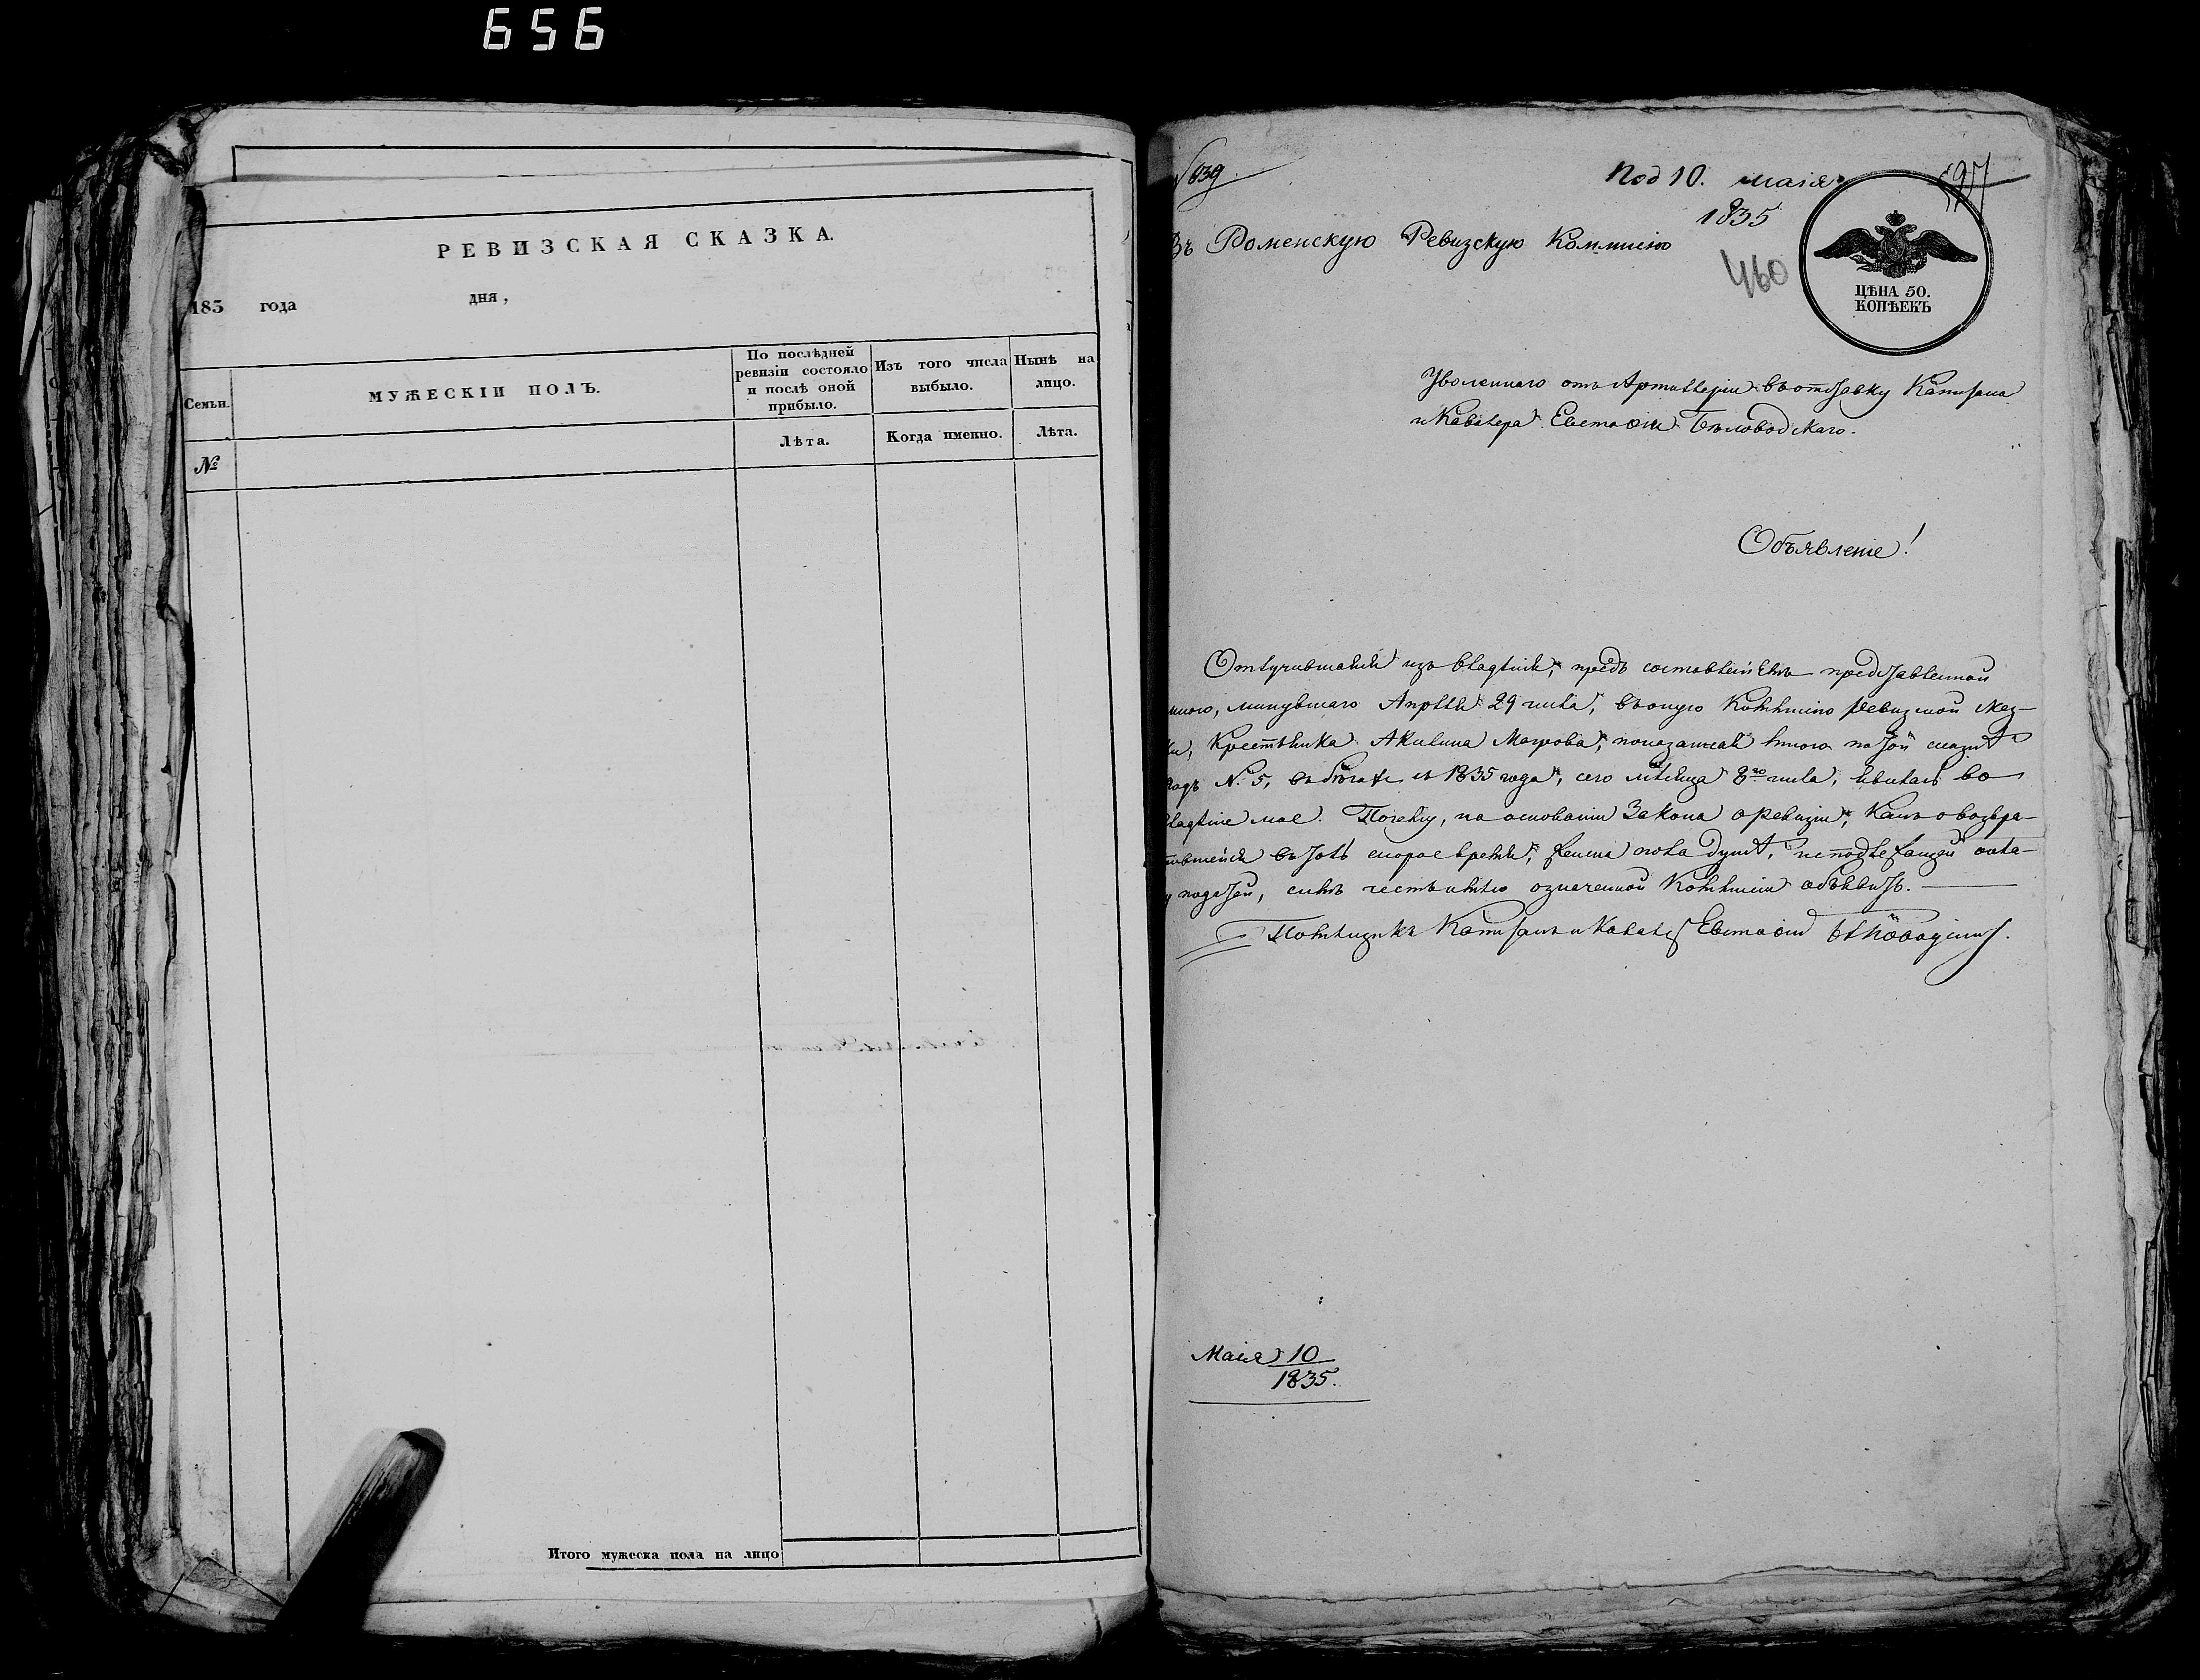 656
РЕВИЗСКАЯ СКАЗКА.
183 года дня,
Семьи.
МУЖЕСКІИ ПОЛЪ.
По послѣдней ревизіи состояло и послѣ оной прибыло.
Изъ того числа выбыло.
Нынѣ на лицо.
№
Лѣта.
Когда именно.
Лѣта.
Итого мужеска пола на лицо
№ 639.
Под 10. маія
1835
Въ Роменскую Ревизскую Коммисію
460
ЦѢНА 50.
КОПѢЕКЪ
Уволеннаго отъ Артиллеріи въ отставку Капитана
и Кавалера Евстафія Бѣловодскаго.
Объявленіе!
Отлучившаяся изъ владѣнія, предъ составленіемъ представленной
мною, минувшаго Апрѣля 29 числа, въ оную Коммисію Ревизской Сказ-
ки, Крестьянка Акилина, показанная мною по той сказкѣ
подъ №. 5, въ бѣгахъ съ 1835 года, сего мѣсяца 8го числа, явилась во
владѣніе мое. Почему, на основаніи Закона о Ревизіи, какъ о возвра-
тившейся въ толь скорое время, женска пола душѣ, неподлежащей окла-
ду податей, симъ честь имѣю означенной Коммисіи объявить.
Помѣщикъ Капитанъ и Кавалеръ Евстафій Бѣловодскій.
Маія 10
1835.